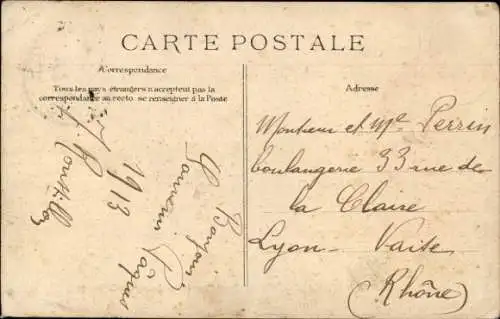 CARTE POSTALE
Correspondance
Tous les pays étrangers n'acceptent pas la
correspondance au recto se renseigner à la Poste
Adresse
Bonjour
Souvenir Pâques
1913
Monsieur et Me Perrin
boulangerie 33 rue de
la Claire
Lyon - Vaise
(Rhône)